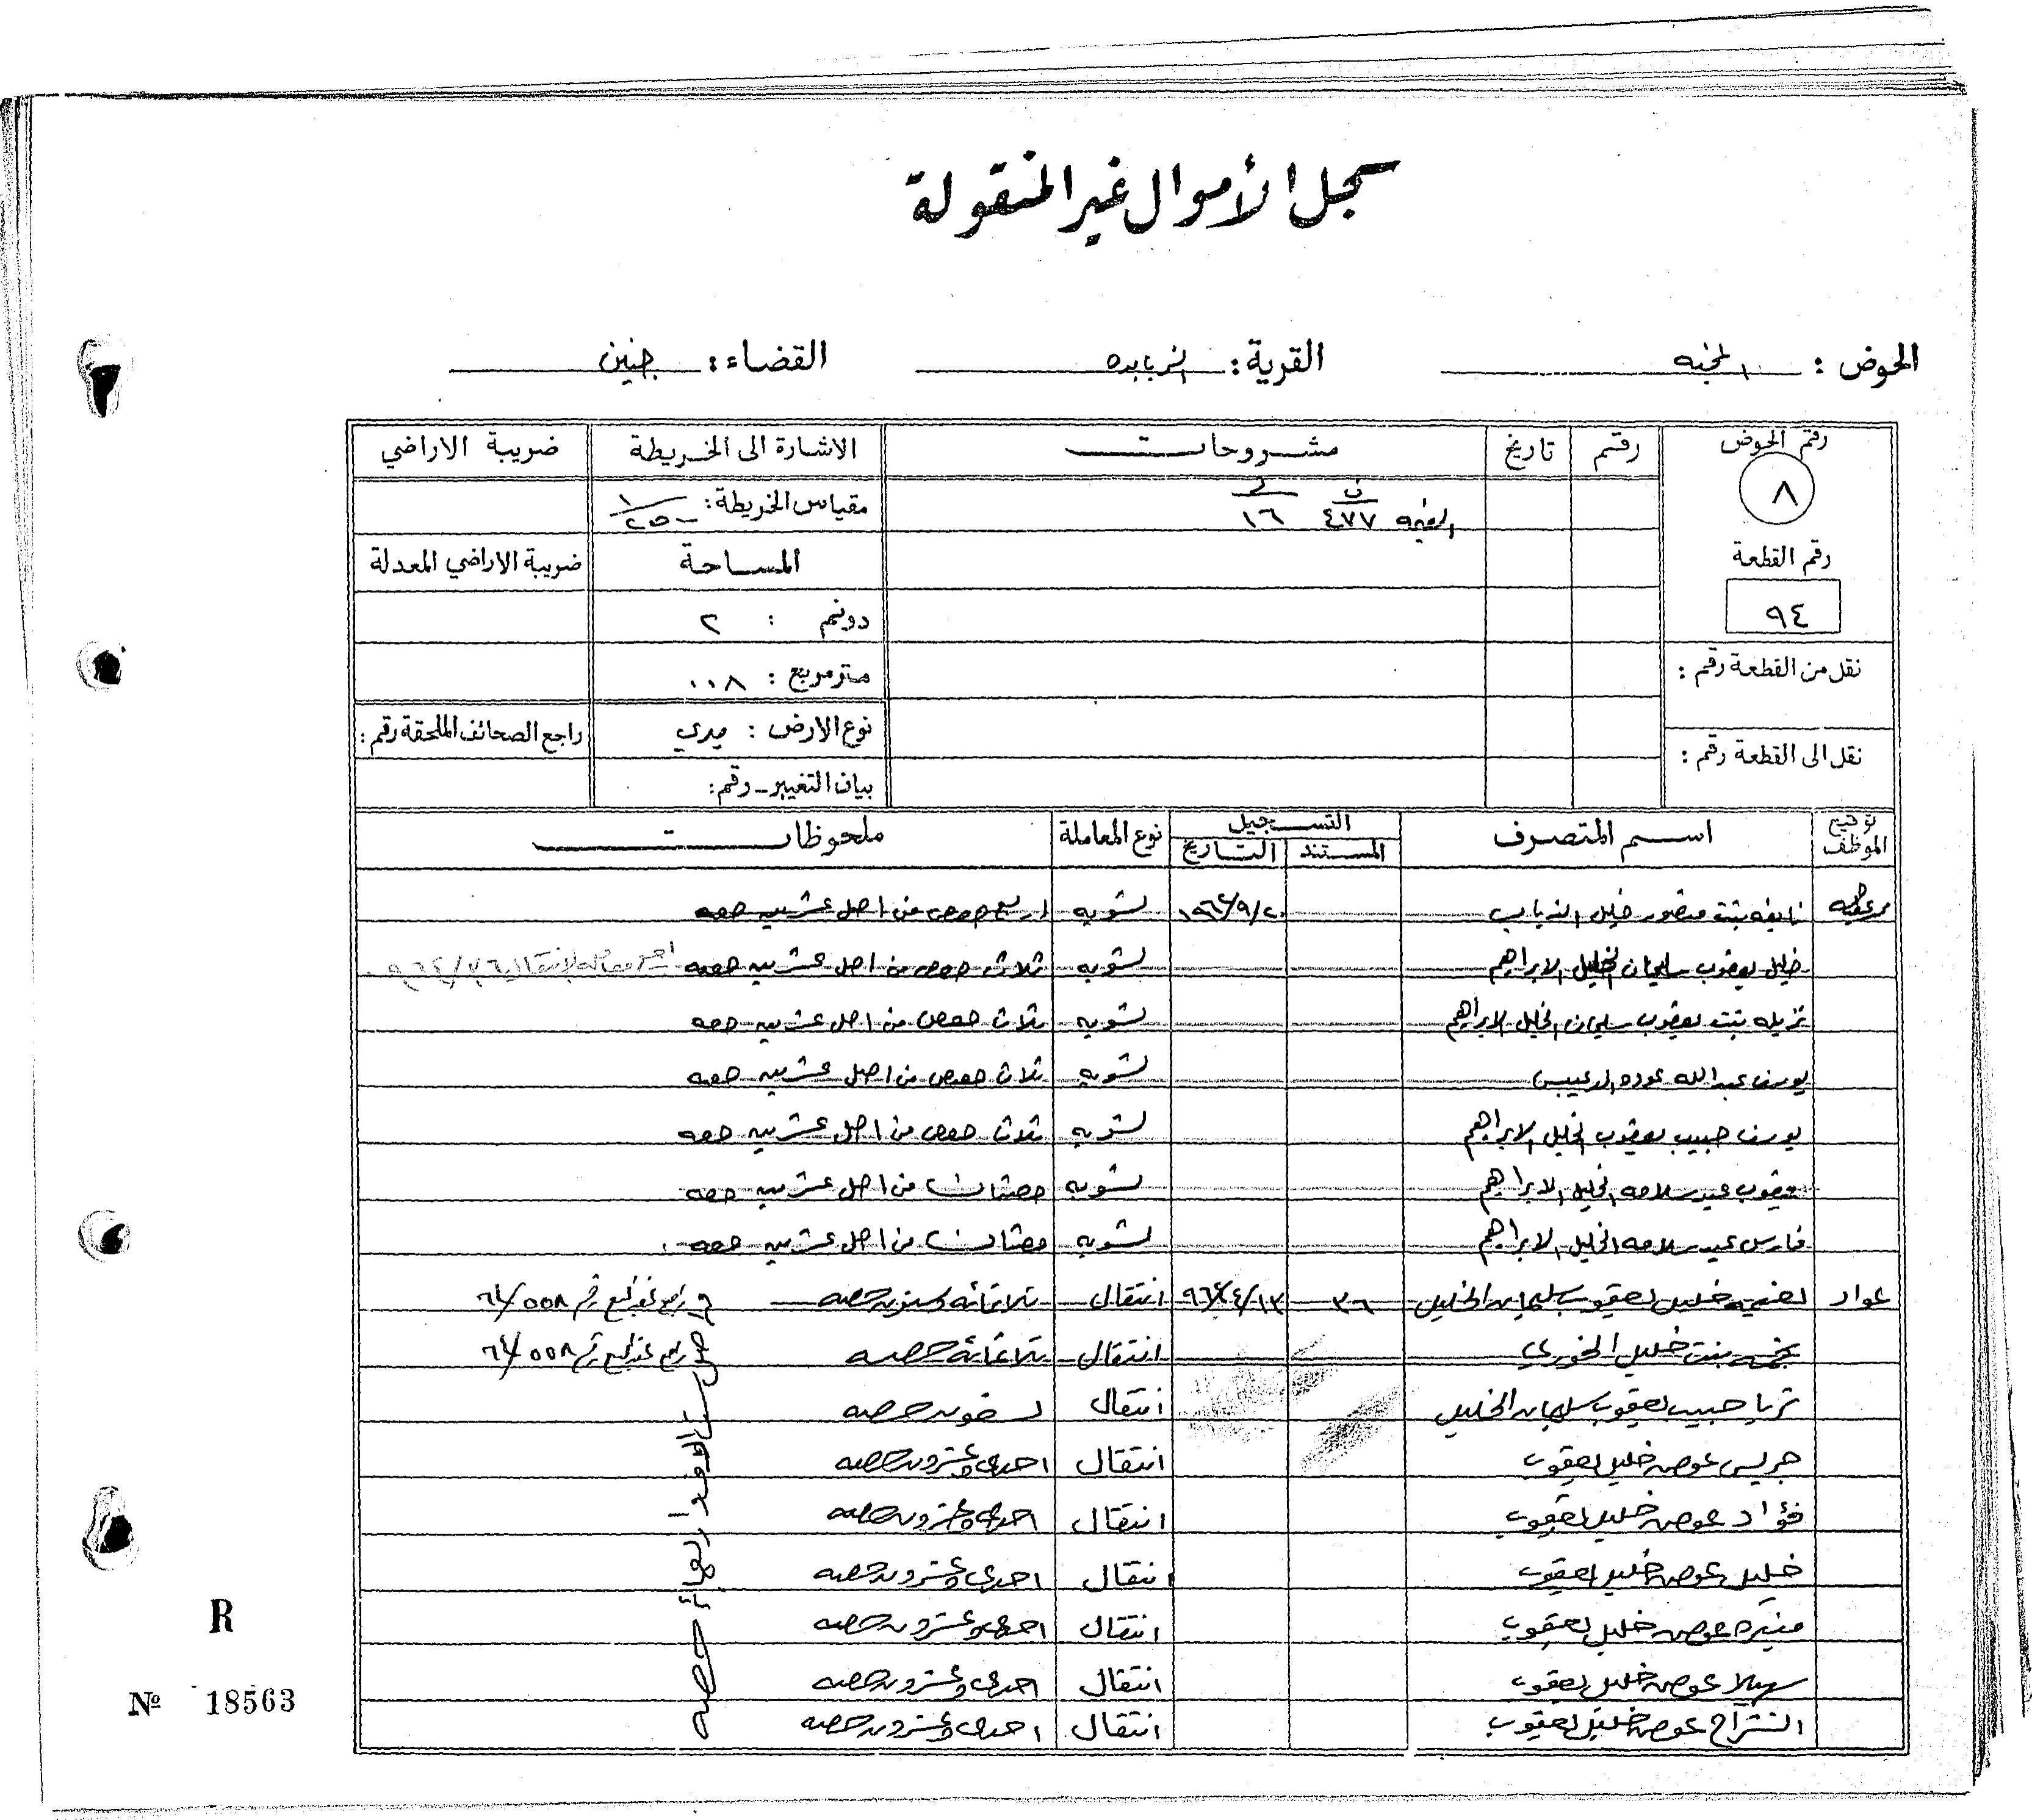 سجل الأموال غير المنقولة
الحوض : المجنه القرية : الزبابده القضاء : جنين
رقم الحوض رقم تاريخ مشروحات الاشارة الى الخريطة ضريبة الاراضي
٨ مقياس الخريطة : ١/٢٥٠٠
٤٧٧ ١٦
رقم القطعة المساحة ضريبة الاراضي المعدلة
٩٤ دونم : ٢
نقل من القطعة رقم : متر مربع : ٠٠٨
نوع الارض : ميري راجع الصحائف الملحقة رقم :
نقل الى القطعة رقم : بيان التغيير - رقم :
توقيع الموظف اسم المتصرف التسجيل نوع المعاملة ملحوظات
المستند التاريخ
نايفه بنت منصور خليل الذياب تسويه اربع حصص من اصل عشرين حصه
خليل يعقوب سليمان الخليل الابراهيم تسويه ثلاث حصص من اصل عشرين حصه
نزيله بنت يعقوب سليمان الخليل الابراهيم تسويه ثلاث حصص من اصل عشرين حصه
يوسف عبدالله عوده تسويه ثلاث حصص من اصل عشرين حصه
يوسف حبيب يعقوب الخليل الابراهيم تسويه ثلاث حصص من اصل عشرين حصه
يعقوب عيد سلامه الخليل الابراهيم تسويه حصتان من اصل عشرين حصه
فارس عيد سلامه الخليل الابراهيم تسويه حصتان من اصل عشرين حصه
عواد خليل يعقوب سليمان الخليل ٣٦ ١٣/٤/٩٦٤ انتقال ثلاثمائه وستون حصه راجع عقد البيع رقم ٥٥٨/٦٤
نجمه بنت خليل الخوري انتقال ثلاثمائة حصه راجع عقد البيع رقم ٥٥٨/٦٤
ثريا حبيب يعقوب سليمان الخليل انتقال تسعون حصه
جريس عوض خليل يعقوب انتقال احدى وعشرون حصه
فؤاد عوض خليل يعقوب انتقال احدى وعشرون حصه
خليل عوض خليل يعقوب انتقال احدى وعشرون حصه
منيره عوض خليل يعقوب انتقال احدى وعشرون حصه
سهيلا عوض خليل يعقوب انتقال احدى وعشرون حصه
انشراح عوض خليل يعقوب انتقال احدى وعشرون حصه
R
№ 18563